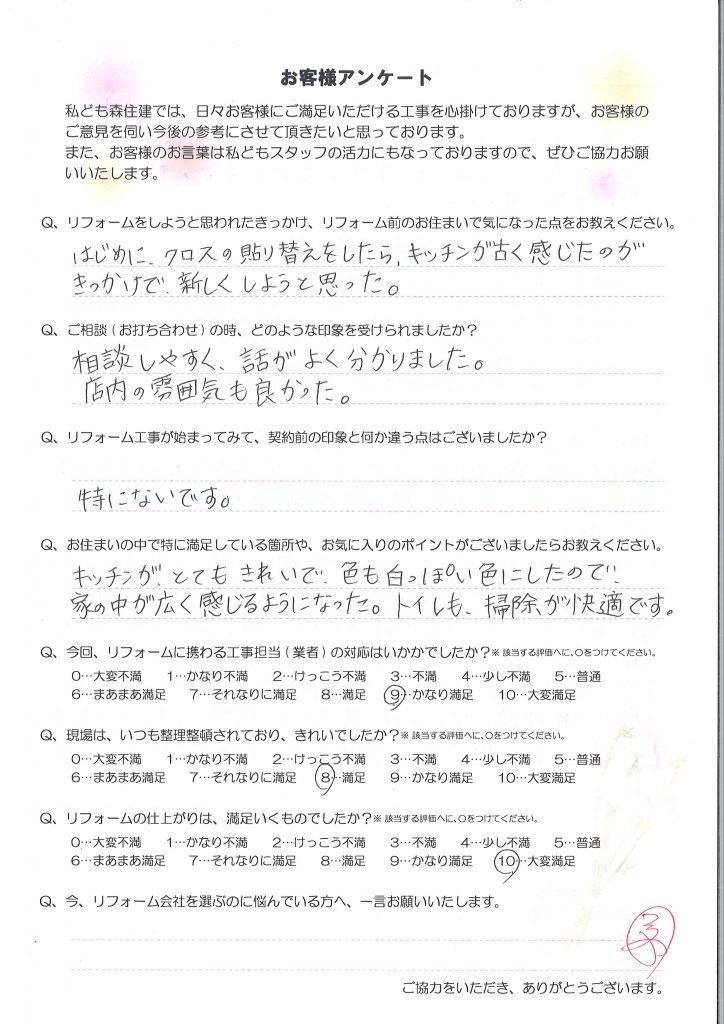 お客様アンケート
私ども森住建では、日々お客様にご満足いただける工事を心掛けておりますが、お客様の
ご意見を伺い今後の参考にさせて頂きたいと思っております。
また、お客様のお言葉は私どもスタッフの活力にもなっておりますので、ぜひご協力お願
いいたします。
Q、リフォームをしようと思われたきっかけ、リフォーム前のお住まいで気になった点をお教えください。
はじめに、クロスの貼り替えをしたら、キッチンが古く感じたのが
きっかけで、新しくしようと思った。
Q、ご相談(お打ち合わせ)の時、どのような印象を受けられましたか?
相談しやすく、話がよく分かりました。
店内の雰囲気も良かった。
Q、リフォーム工事が始まってみて、契約前の印象と何か違う点はございましたか?
特にないです。
Q、お住まいの中で特に満足している箇所や、お気に入りのポイントがございましたらお教えください。
キッチンが、とてもきれいで、色も白っぽい色にしたので、
家の中が広く感じるようになった。トイレも、掃除が快適です。
Q、今回、リフォームに携わる工事担当(業者)の対応はいかかでしたか?※該当する評価へに、○をつけてください。
0…大変不満 1…かなり不満 2…けっこう不満 3…不満 4…少し不満 5…普通
6…まあまあ満足 7…それなりに満足 8…満足 9…かなり満足 10…大変満足
Q、現場は、いつも整理整頓されており、きれいでしたか?※該当する評価へに、○をつけてください。
0…大変不満 1…かなり不満 2…けっこう不満 3…不満 4…少し不満 5…普通
6…まあまあ満足 7…それなりに満足 8…満足 9…かなり満足 10…大変満足
Q、リフォームの仕上がりは、満足いくものでしたか?※該当する評価へに、○をつけてください。
0…大変不満 1…かなり不満 2…けっこう不満 3…不満 4…少し不満 5…普通
6…まあまあ満足 7…それなりに満足 8…満足 9…かなり満足 10…大変満足
Q、今、リフォーム会社を選ぶのに悩んでいる方へ、一言お願いいたします。
ご協力をいただき、ありがとうございます。